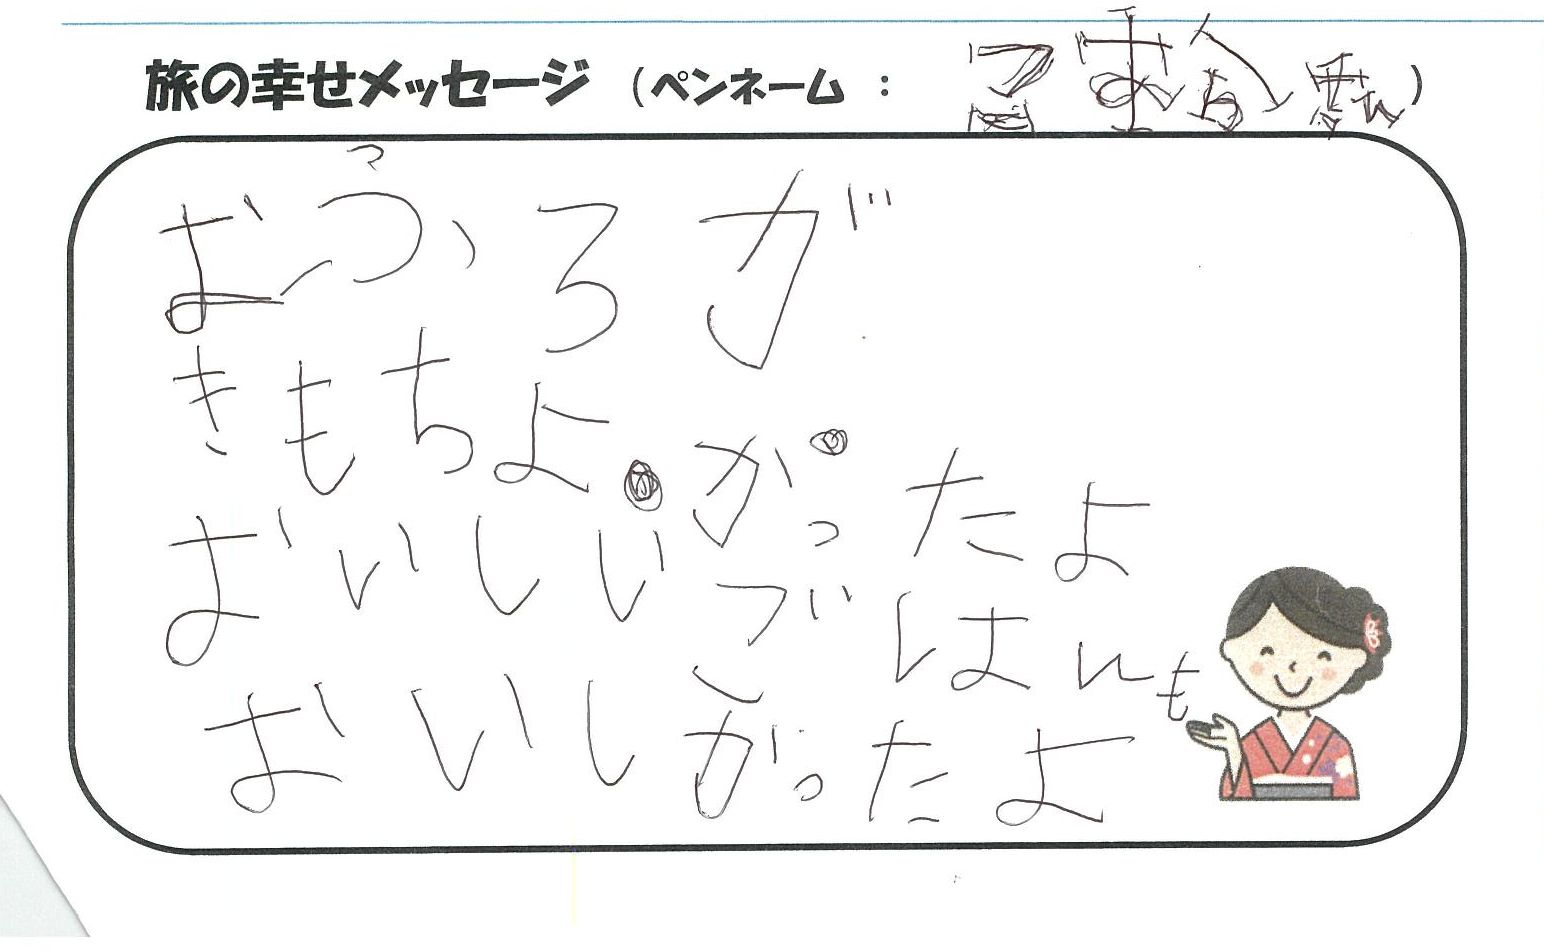 旅の幸せメッセージ（ペンネーム：）
おふろが
きもちよかったよ
おいしいごはんも
おいしがったよ